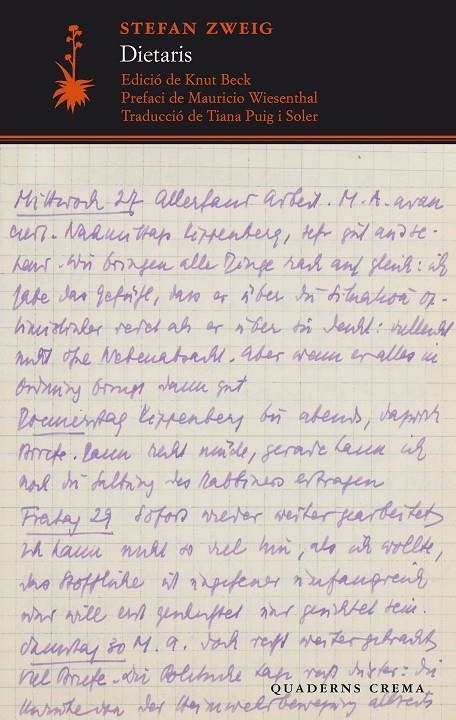 STEFAN ZWEIG
Dietaris
Edició de Knut Beck
Prefaci de Mauricio Wiesenthal
Traducció de Tiana Puig i Soler
Mittwoch 27 Allerhand Arbeit. M. A. avan
ciert. Nachmittags Kippenberg, sehr gut ausse-
hend. Wir bringen alle Dinge rasch auf gleich: ich
habe das Gefühl, dass er über die Situation op-
timistischer redet als er über sie denkt: vielleicht
nicht ohne Nebenabsicht. Aber wenn er alles in
Ordnung bringt dann gut
Donnerstag Kippenberg bis abends, dazwisch
Briefe. Dann recht müde, gerade kann ich
noch die des Rabbiners ertragen
Freitag 29 Sofort wieder weitergearbeitet
Ich kann nicht so viel hin, als ich wollte,
das Stoffliche ist ungeheuer umfangreich
und will erst und gesichtet sein.
Samstag 30 M. A. doch recht weitergebracht
Viel Briefe. die Politische Lage recht düster: die
von der Heimwehrbewegung
QUADERNS CREMA